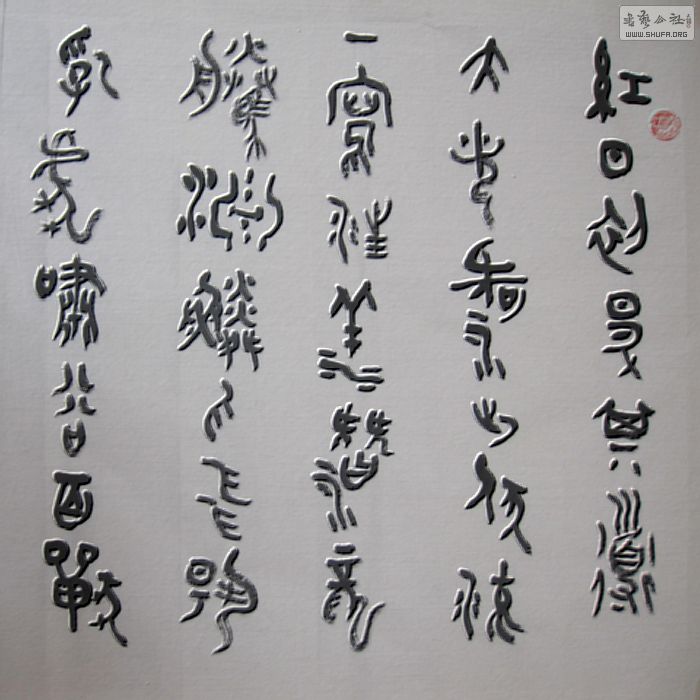 紅日初升其道
大光河出伏流
一瀉汪洋潛龍
騰淵鱗爪飛揚
乳虎嘯谷百獸
書藝公社
WWW.SHUFA.ORG